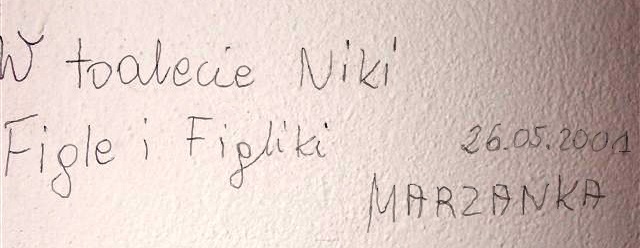 W toalecie Niki
Figle i Figliki
26.05.2001
MARZANKA